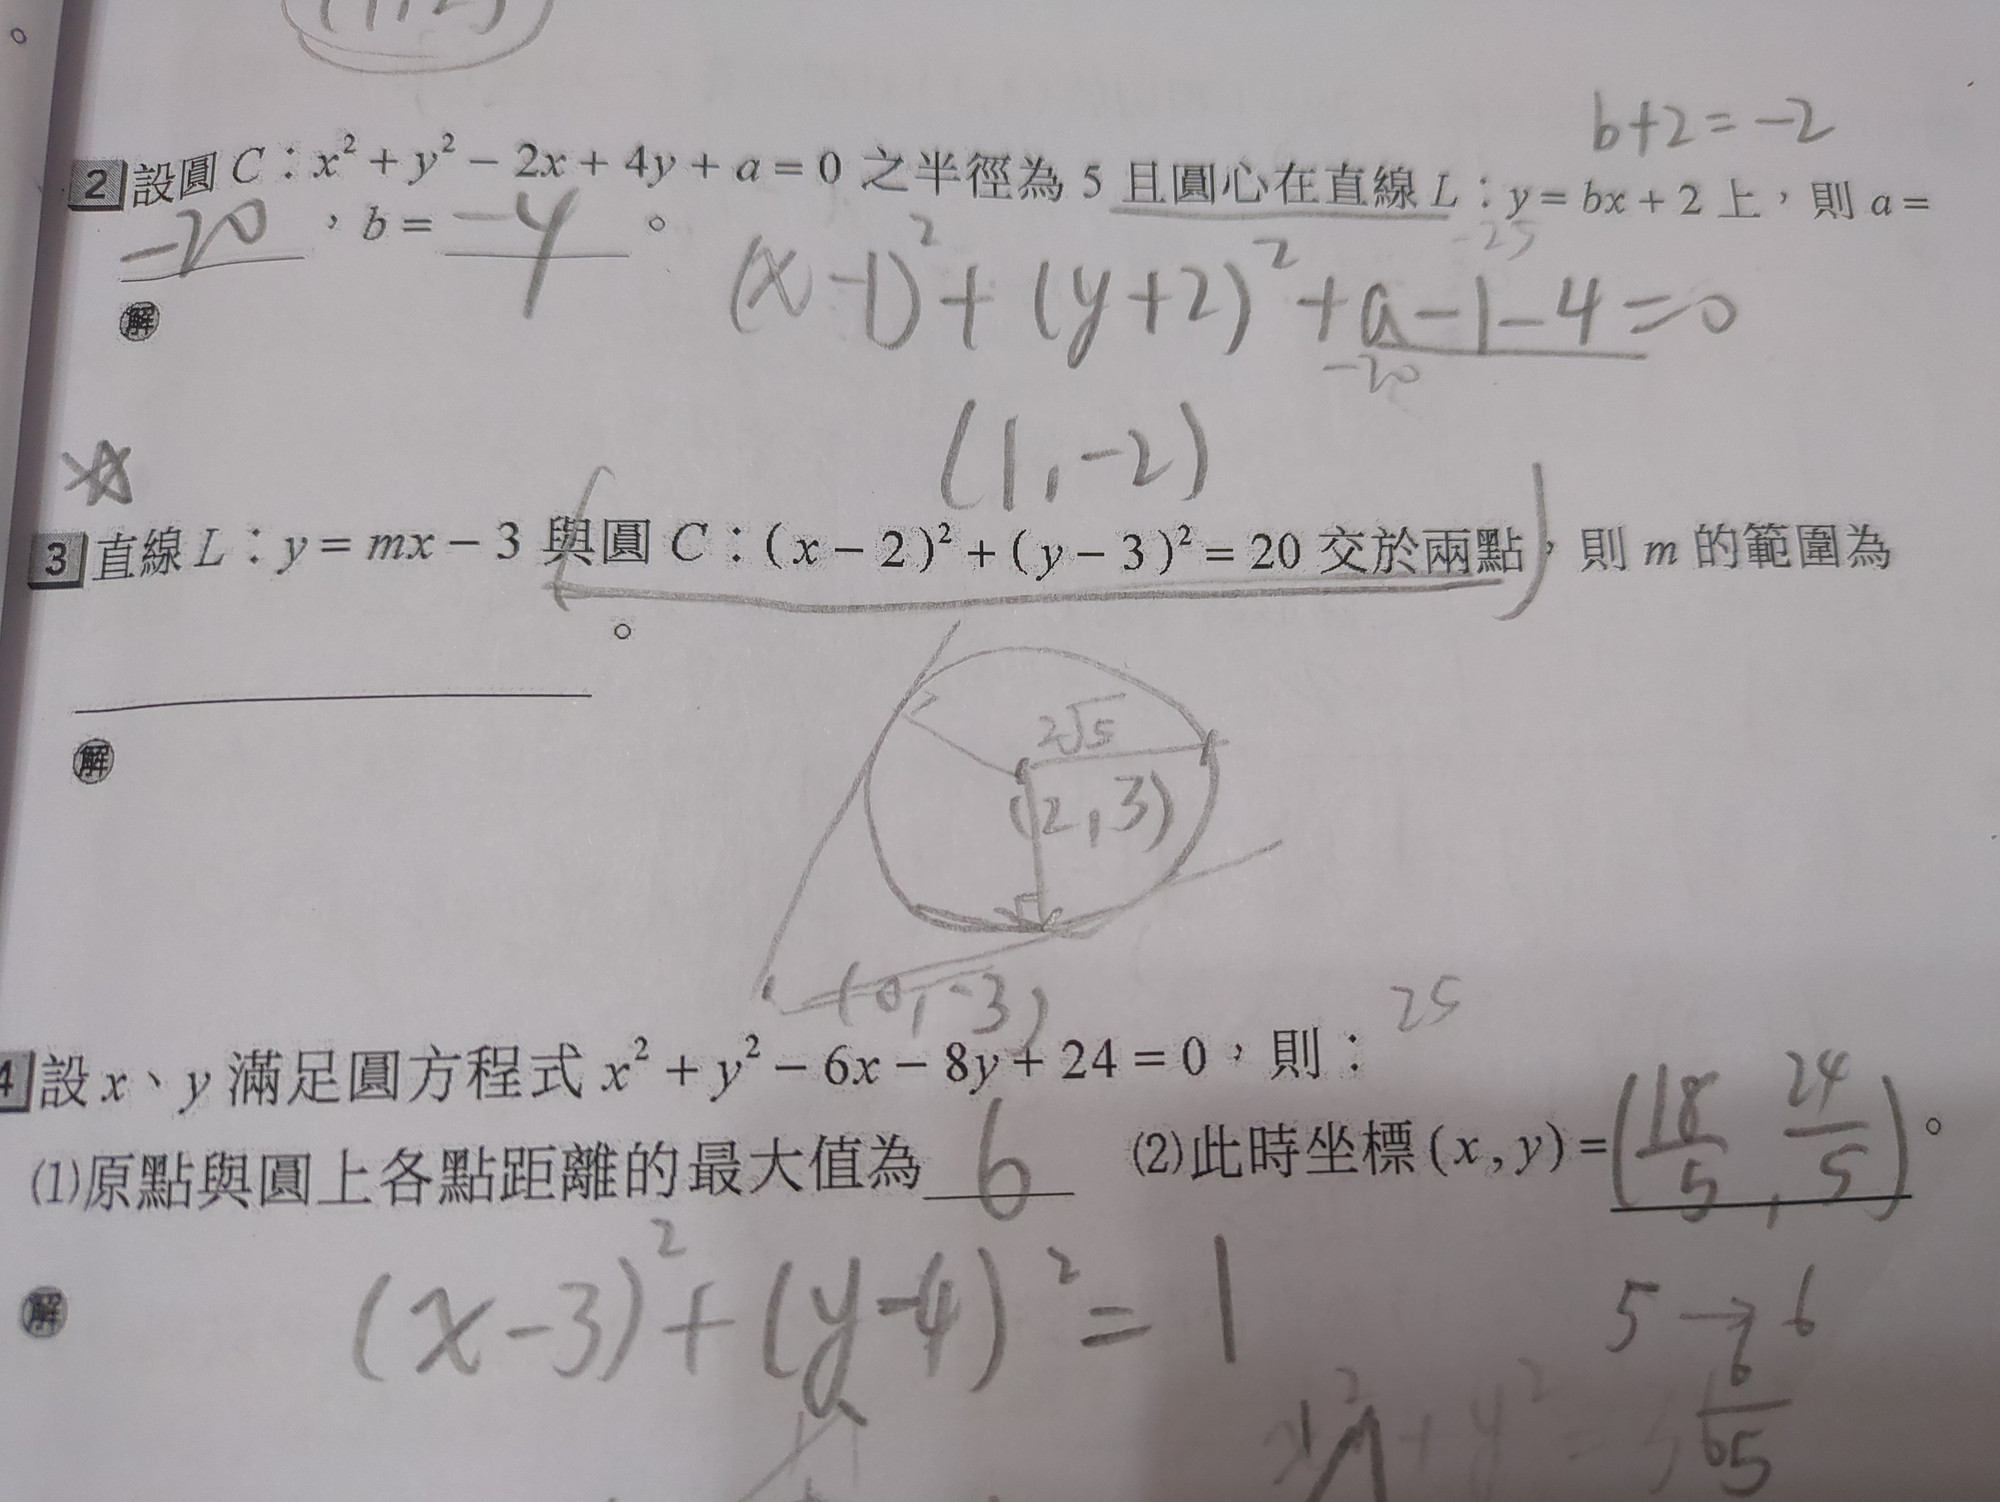 2 設圓 C：x² + y² − 2x + 4y + a = 0 之半徑為 5 且圓心在直線 L：y = bx + 2 上，則 a =
b+2=-2
-20 ，b = -4 。
-25
(x-1)² + (y+2)² + a-1-4=0
解
-20
(1,-2)
3 直線 L：y = mx − 3 與圓 C：(x − 2)² + (y − 3)² = 20 交於兩點，則 m 的範圍為
。
2√5
解
(2,3)
(0,-3)
25
4 設 x、y 滿足圓方程式 x² + y² − 6x − 8y + 24 = 0，則：
(1)原點與圓上各點距離的最大值為 6 (2)此時坐標 (x, y) = (18/5, 24/5)。
解
(x-3)² + (y-4)² = 1
5→6